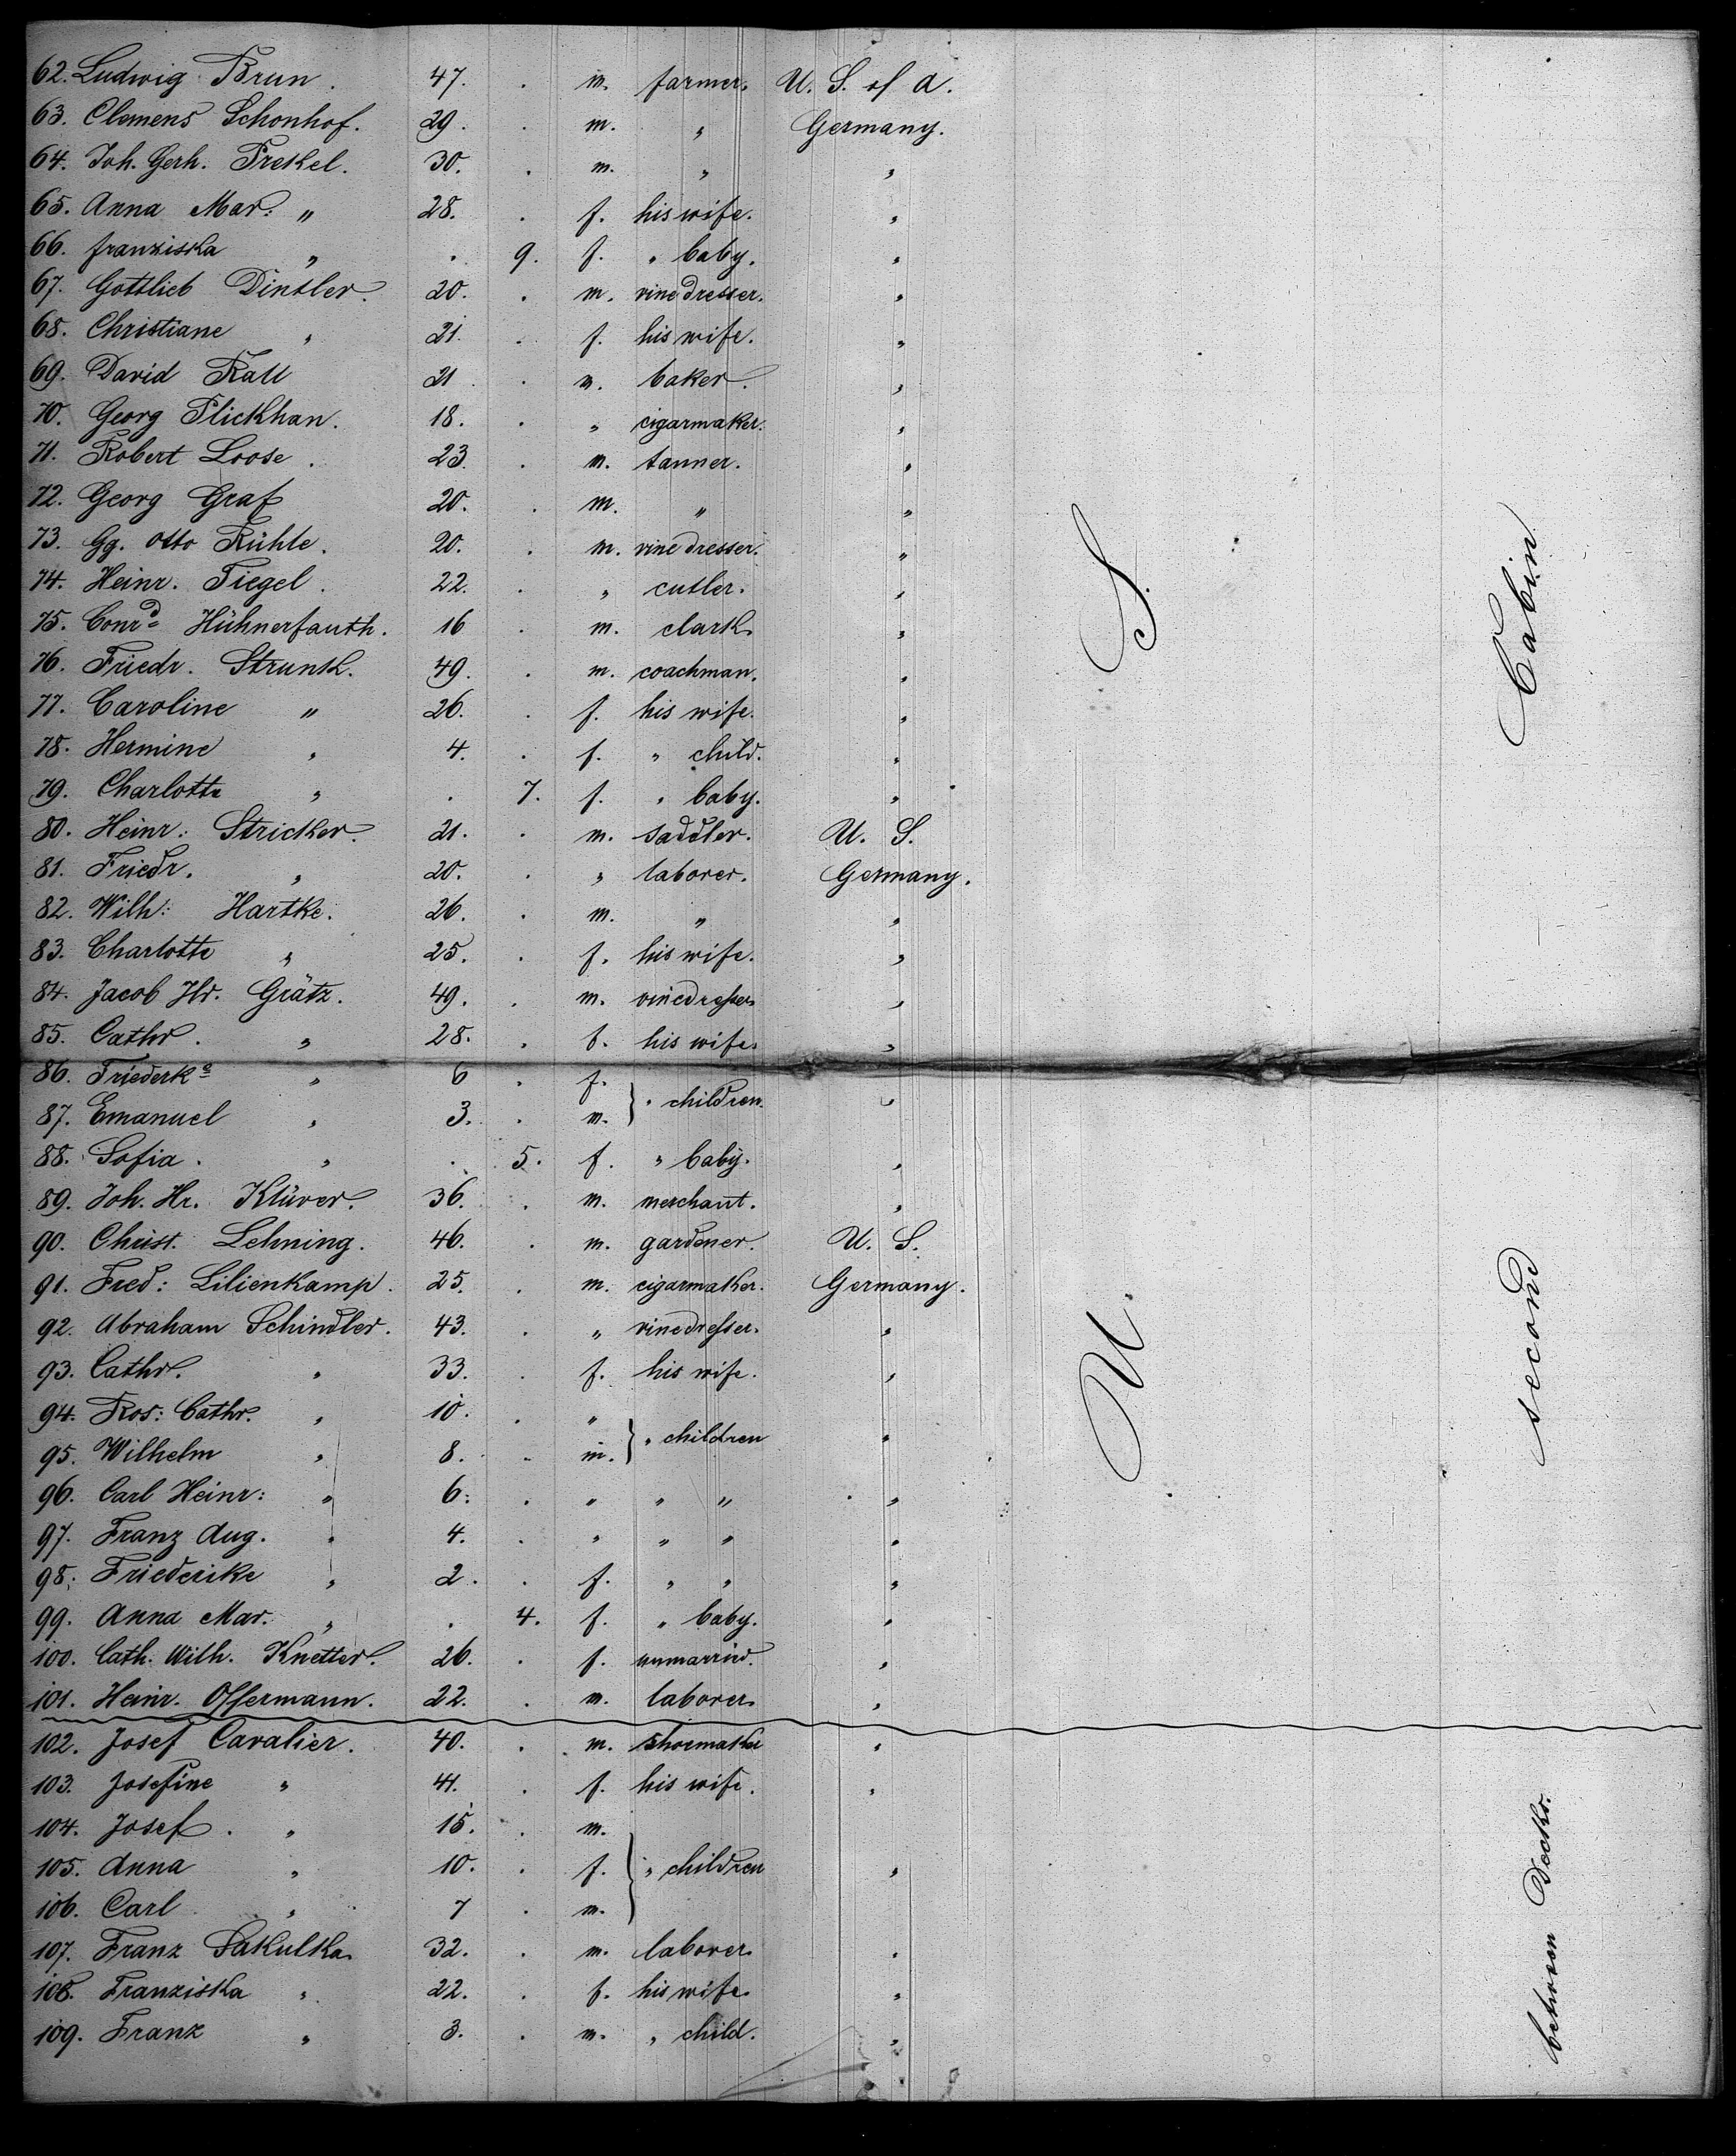 62. Ludwig Brun. 47. . m. farmer. U. S. of a.
63. Clemens Schonhof. 29. . m. " Germany.
64. Joh. Gerh. Frekel. 30. . m. " "
65. Anna Mar: " 28. . f. his wife. "
66. franziska " . 9. f. " baby. "
67. Gottlieb Dinkler. 20. . m. vinedresser. "
68. Christiane " 21. . f. his wife. "
69. David 21 . m. baker. "
70. Georg Flickhan. 18. . " cigarmaker. "
71. Robert Loose. 23. . m. tanner. "
72. Georg Graf 20. . m. " "
73. Gg. Otto Rühle. 20. . m. vinedresser. "
74. Heinr. Tiegel. 22. . " cutler. "
75. Conrd Hühnerfauth. 16 . m. clark. "
76. Friedr. Strunk. 49. . m. coachman. "
77. Caroline " 26. . f. his wife. "
78. Hermine " 4. . f. " child. "
79. Charlotte " . 7. f. " baby. "
80. Heinr: Stricker. 21. . m. saddler. U. S.
81. Friedr. " 20. . " laborer. Germany.
82. Wilh: Hartke. 26. . m. " "
83. Charlotte " 25. . f. his wife. "
84. Jacob Hr. Grätz. 49. . m. vinedresser "
85. Cathr. " 28. . f. his wife. "
86. Friederke " 6 . f. } " children. "
87. Emanuel " 3. . m.
88. Sofia. " . 5. f. " baby. "
89. Joh. Hr. Klüver. 36. . m. merchant. "
90. Christ. Lehning. 46. . m. gardener. U. S.
91. Fred: Lilienkamp. 25. . m. cigarmaker. Germany.
92. Abraham Schindler. 43. . " vinedresser. "
93. Cathr. " 33. . f. his wife. "
94. Ros: Cathr. " 10. . " } " children "
95. Wilhelm " 8. . m.
96. Carl Heinr: " 6. . " " " "
97. Franz Aug. " 4. . " " " "
98. Friederike " 2. . f. " " "
99. Anna Mar. " . 4. f. " baby. "
100. Cath. Wilh. Knetter. 26. . f. unmarried. "
101. Heinr. Offermann. 22. . m. laborer. "
102. Josef Cavalier. 40. . m. shoemaker "
103. Josefine " 41. . f. his wife. "
104. Josef. " 15. . m.
105. Anna " 10. . f. } " children "
106. Carl " 7 . m.
107. Franz Sakulka. 32. . m. laborer. "
108. Franziska " 22. . f. his wife. "
109. Franz " 3. . m. " child. "
U. S.
second Cabin.
between Decks.